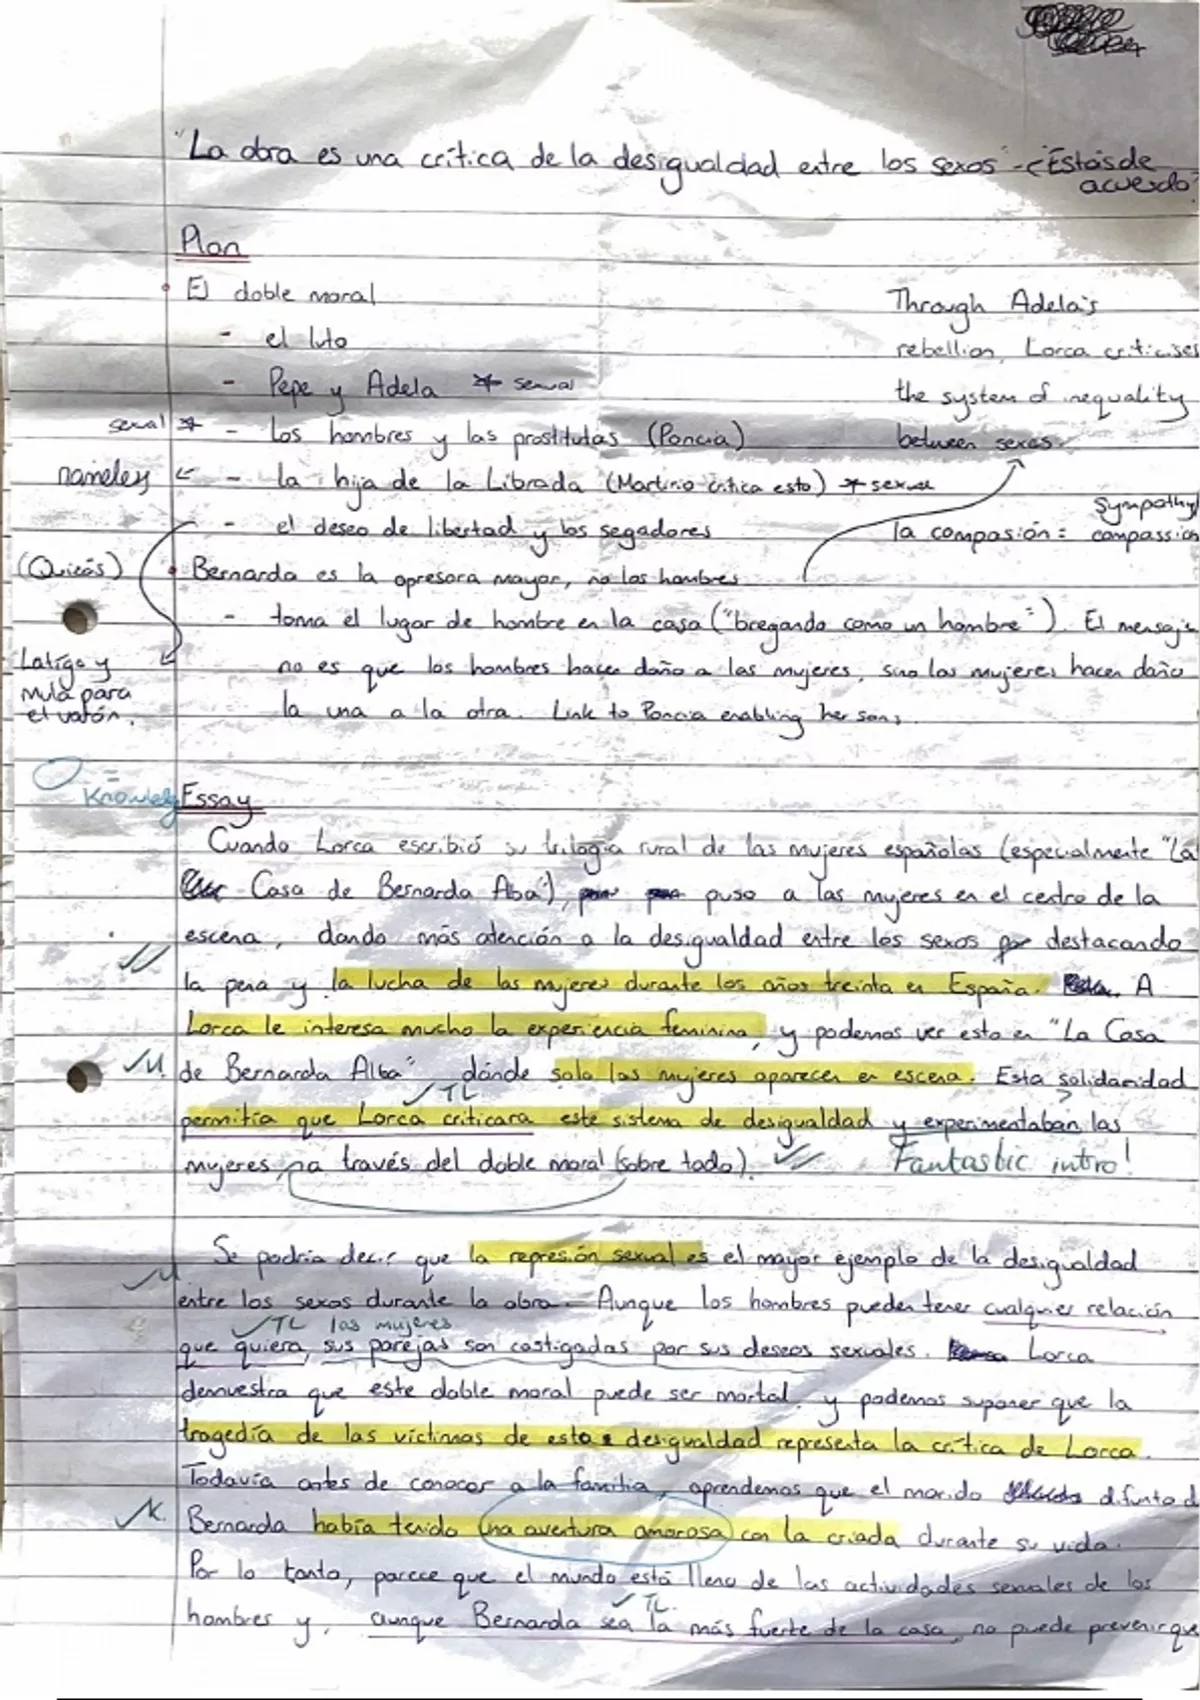 "La obra es una crítica de la desigualdad entre los sexos" - ¿Estás de
acuerdo?
Plan
El doble moral
- el luto
- Pepe y Adela * sexual
sexual * - Los hombres y las prostitutas (Poncia)
nameless ← - La hija de la Librada (Martirio critica esto) * sexual
- el deseo de libertad y los segadores
Through Adela's
rebellion, Lorca criticises
the system of inequality
between sexes.
la compasión = Sympathy/
compassion
(Quizás) Bernarda es la opresora mayor, no los hombres
- toma el lugar de hombre en la casa ("bregando como un hombre"). El mensaje
no es que los hombres hacen daño a las mujeres, sino las mujeres hacen daño
la una a la otra. Link to Poncia enabling her sons
Latigo y
mula para
el varón.
= Knowledge
Essay
Cuando Lorca escribió su trilogía rural de las mujeres españolas (especialmente "La
Casa de Bernarda Aba"), puso a las mujeres en el centro de la
escena, dando más atención a la desigualdad entre los sexos destacando
la pena y la lucha de las mujeres durante los años treinta en España. A
Lorca le interesa mucho la experiencia feminina, y podemos ver esto en "La Casa
de Bernarda Alba" dónde solo las mujeres aparecen en escena. Esta solidaridad
✓ TL
permitía que Lorca criticara este sistema de desigualdad y experimentaban las
mujeres a través del doble moral (sobre todo). Fantastic intro!
Se podría decir que la represión sexual es el mayor ejemplo de la desigualdad
entre los sexos durante la obra. Aunque los hombres pueden tener cualquier relación
✓TL las mujeres
que quiera, sus parejas son castigadas por sus deseos sexuales. Lorca
demuestra que este doble moral puede ser mortal, y podemos suponer que la
tragedía de las víctimas de esta desigualdad representa la crítica de Lorca.
Todavía antes de conocer a la familia, aprendemos que el marido difunto d
Bernarda había tenido una aventura amorosa con la criada durante su vida.
Por lo tanto, parece que el mundo está lleno de las actividades sexuales de los
✓ TL.
hombres y, aunque Bernarda sea la más fuerte de la casa, no puede prevenir que